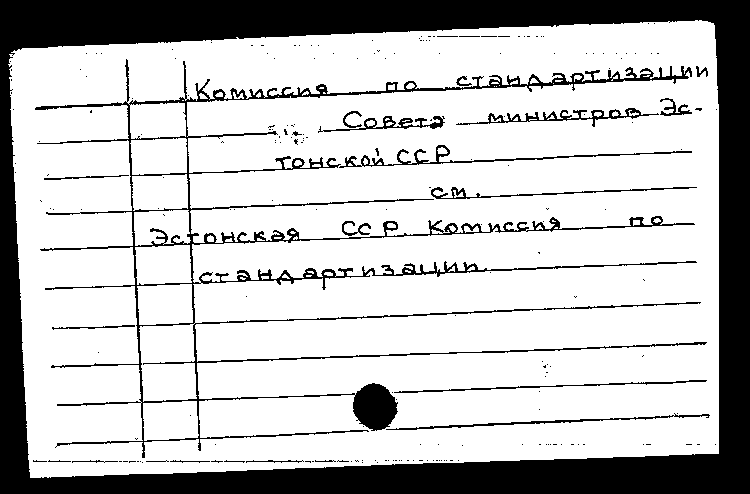 Комиссия по стандартизации
Совета министров Эс-
тонской ССР
см.
Эстонская ССР. Комиссия по
стандартизации.